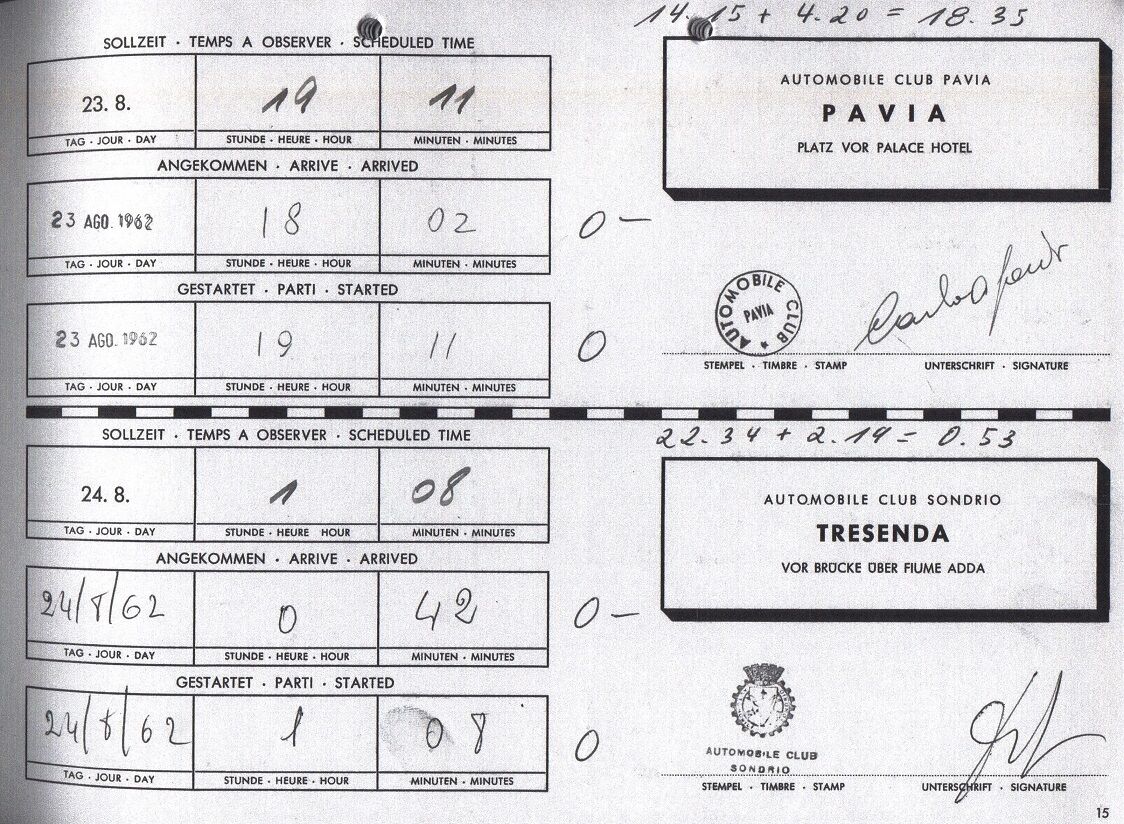 14.15 + 4.20 = 18.35
SOLLZEIT · TEMPS A OBSERVER · SCHEDULED TIME
23.8. 19 11
TAG · JOUR · DAY STUNDE · HEURE · HOUR MINUTEN · MINUTES
AUTOMOBILE CLUB PAVIA
PAVIA
PLATZ VOR PALACE HOTEL
ANGEKOMMEN · ARRIVE · ARRIVED
23 AGO. 1962 18 02 0 —
TAG · JOUR · DAY STUNDE · HEURE · HOUR MINUTEN · MINUTES
GESTARTET · PARTI · STARTED
23 AGO. 1962 19 11 0
TAG · JOUR · DAY STUNDE · HEURE · HOUR MINUTEN · MINUTES
AUTOMOBILE CLUB
PAVIA
STEMPEL · TIMBRE · STAMP UNTERSCHRIFT · SIGNATURE
22.34 + 2.19 = 0.53
SOLLZEIT · TEMPS A OBSERVER · SCHEDULED TIME
24.8. 1 08
TAG · JOUR · DAY STUNDE · HEURE HOUR MINUTEN · MINUTES
AUTOMOBILE CLUB SONDRIO
TRESENDA
VOR BRÜCKE ÜBER FIUME ADDA
ANGEKOMMEN · ARRIVE · ARRIVED
24/8/62 0 42 0 —
TAG · JOUR · DAY STUNDE · HEURE · HOUR MINUTEN · MINUTES
GESTARTET · PARTI · STARTED
24/8/62 1 08 0
TAG · JOUR · DAY STUNDE · HEURE · HOUR MINUTEN · MINUTES
AUTOMOBILE CLUB
SONDRIO
STEMPEL · TIMBRE · STAMP UNTERSCHRIFT · SIGNATURE
15